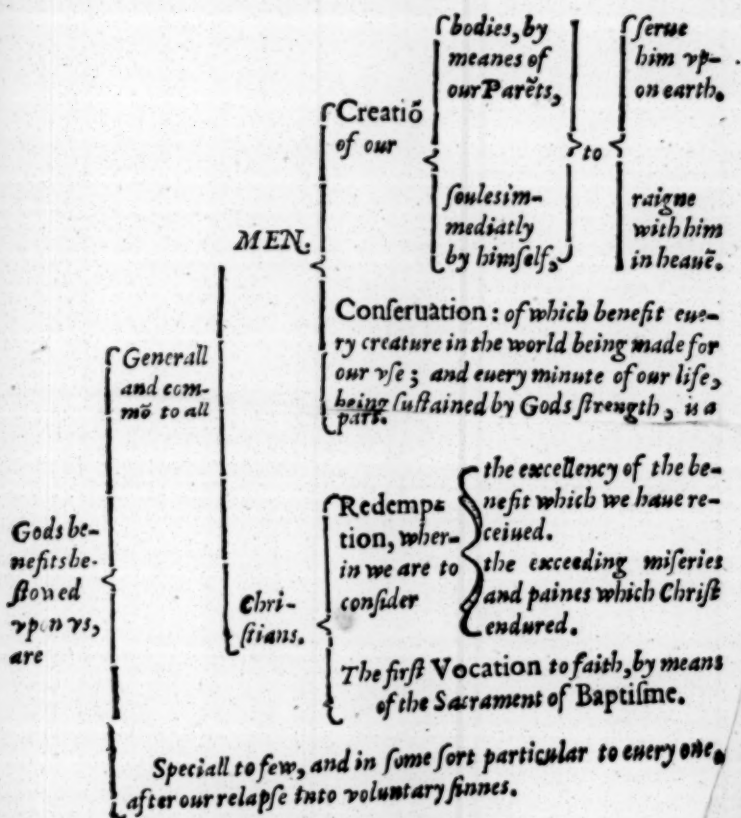 Gods be-
nefits be-
ſtowed
vpon vs,
are
Generall
and com-
mō to all
MEN.
Creatiō
of our
bodies, by
meanes of
our Parēts,
ſoules im-
mediatly
by himſelf,
to
ſerue
him vp-
on earth.
raigne
with him
in heauē.
Conſeruation : of which benefit eue-
ry creature in the world being made for
our vſe ; and euery minute of our life,
being ſuſtained by Gods ſtrength, is a
part.
Chri-
ſtians.
Redemp-
tion, wher-
in we are to
conſider
the excellency of the be-
nefit which we haue re-
ceiued.
the exceeding miſeries
and paines which Chriſt
endured.
The firſt Vocation to faith, by means
of the Sacrament of Baptiſme.
Speciall to few, and in ſome ſort particular to euery one,
after our relapſe into voluntary ſinnes.